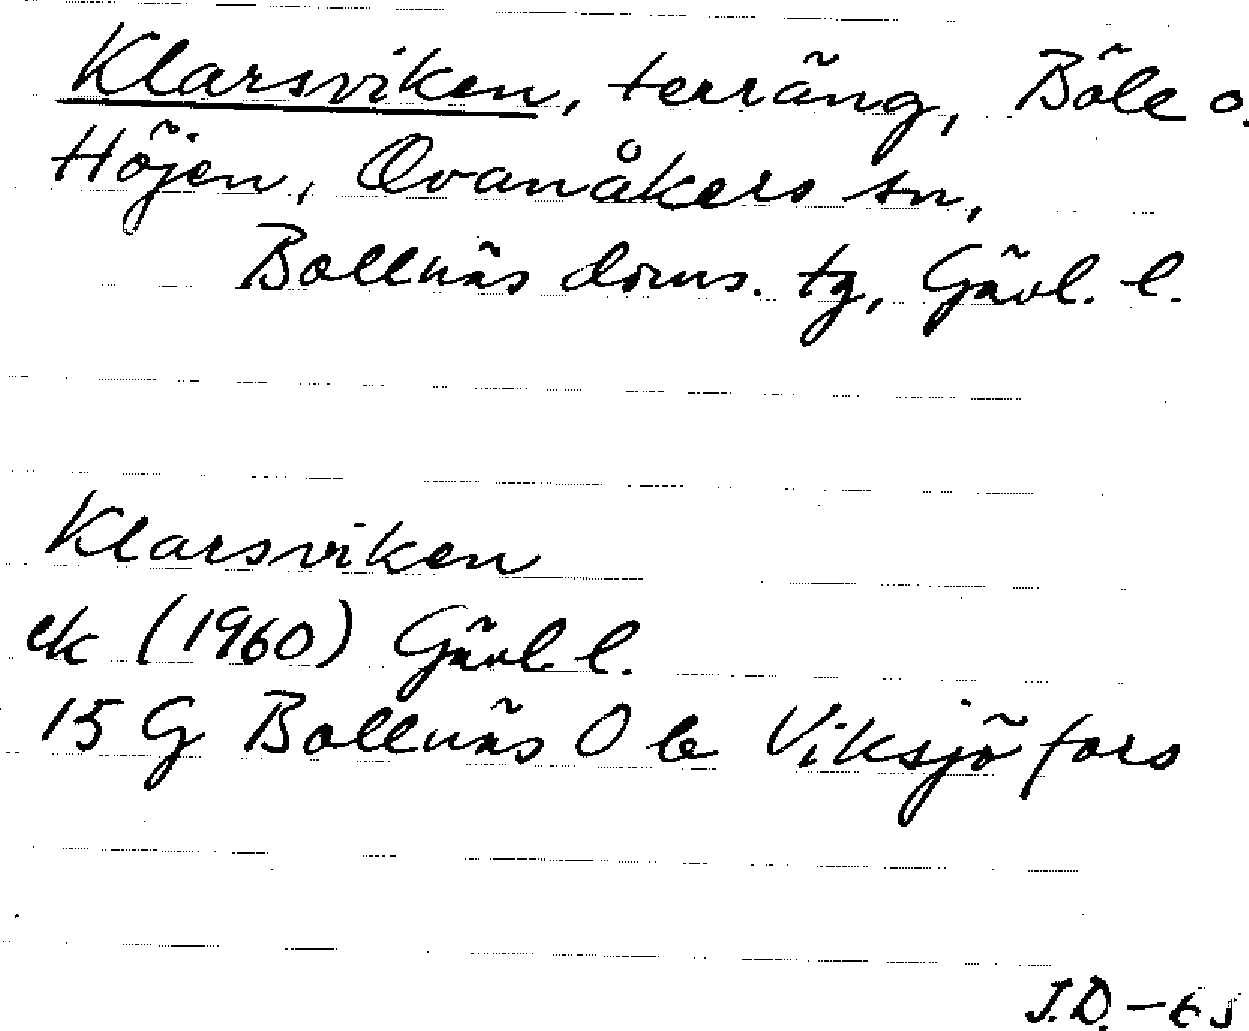 Klarsviken, terräng, Böle o.
Höjen, Ovanåkers sn,
Bollnäs doms. tg, Gävl. l.
Klarsviken
ek (1960) Gävl. l.
15 G Bollnäs O b Viksjöfors
J.D. - 65